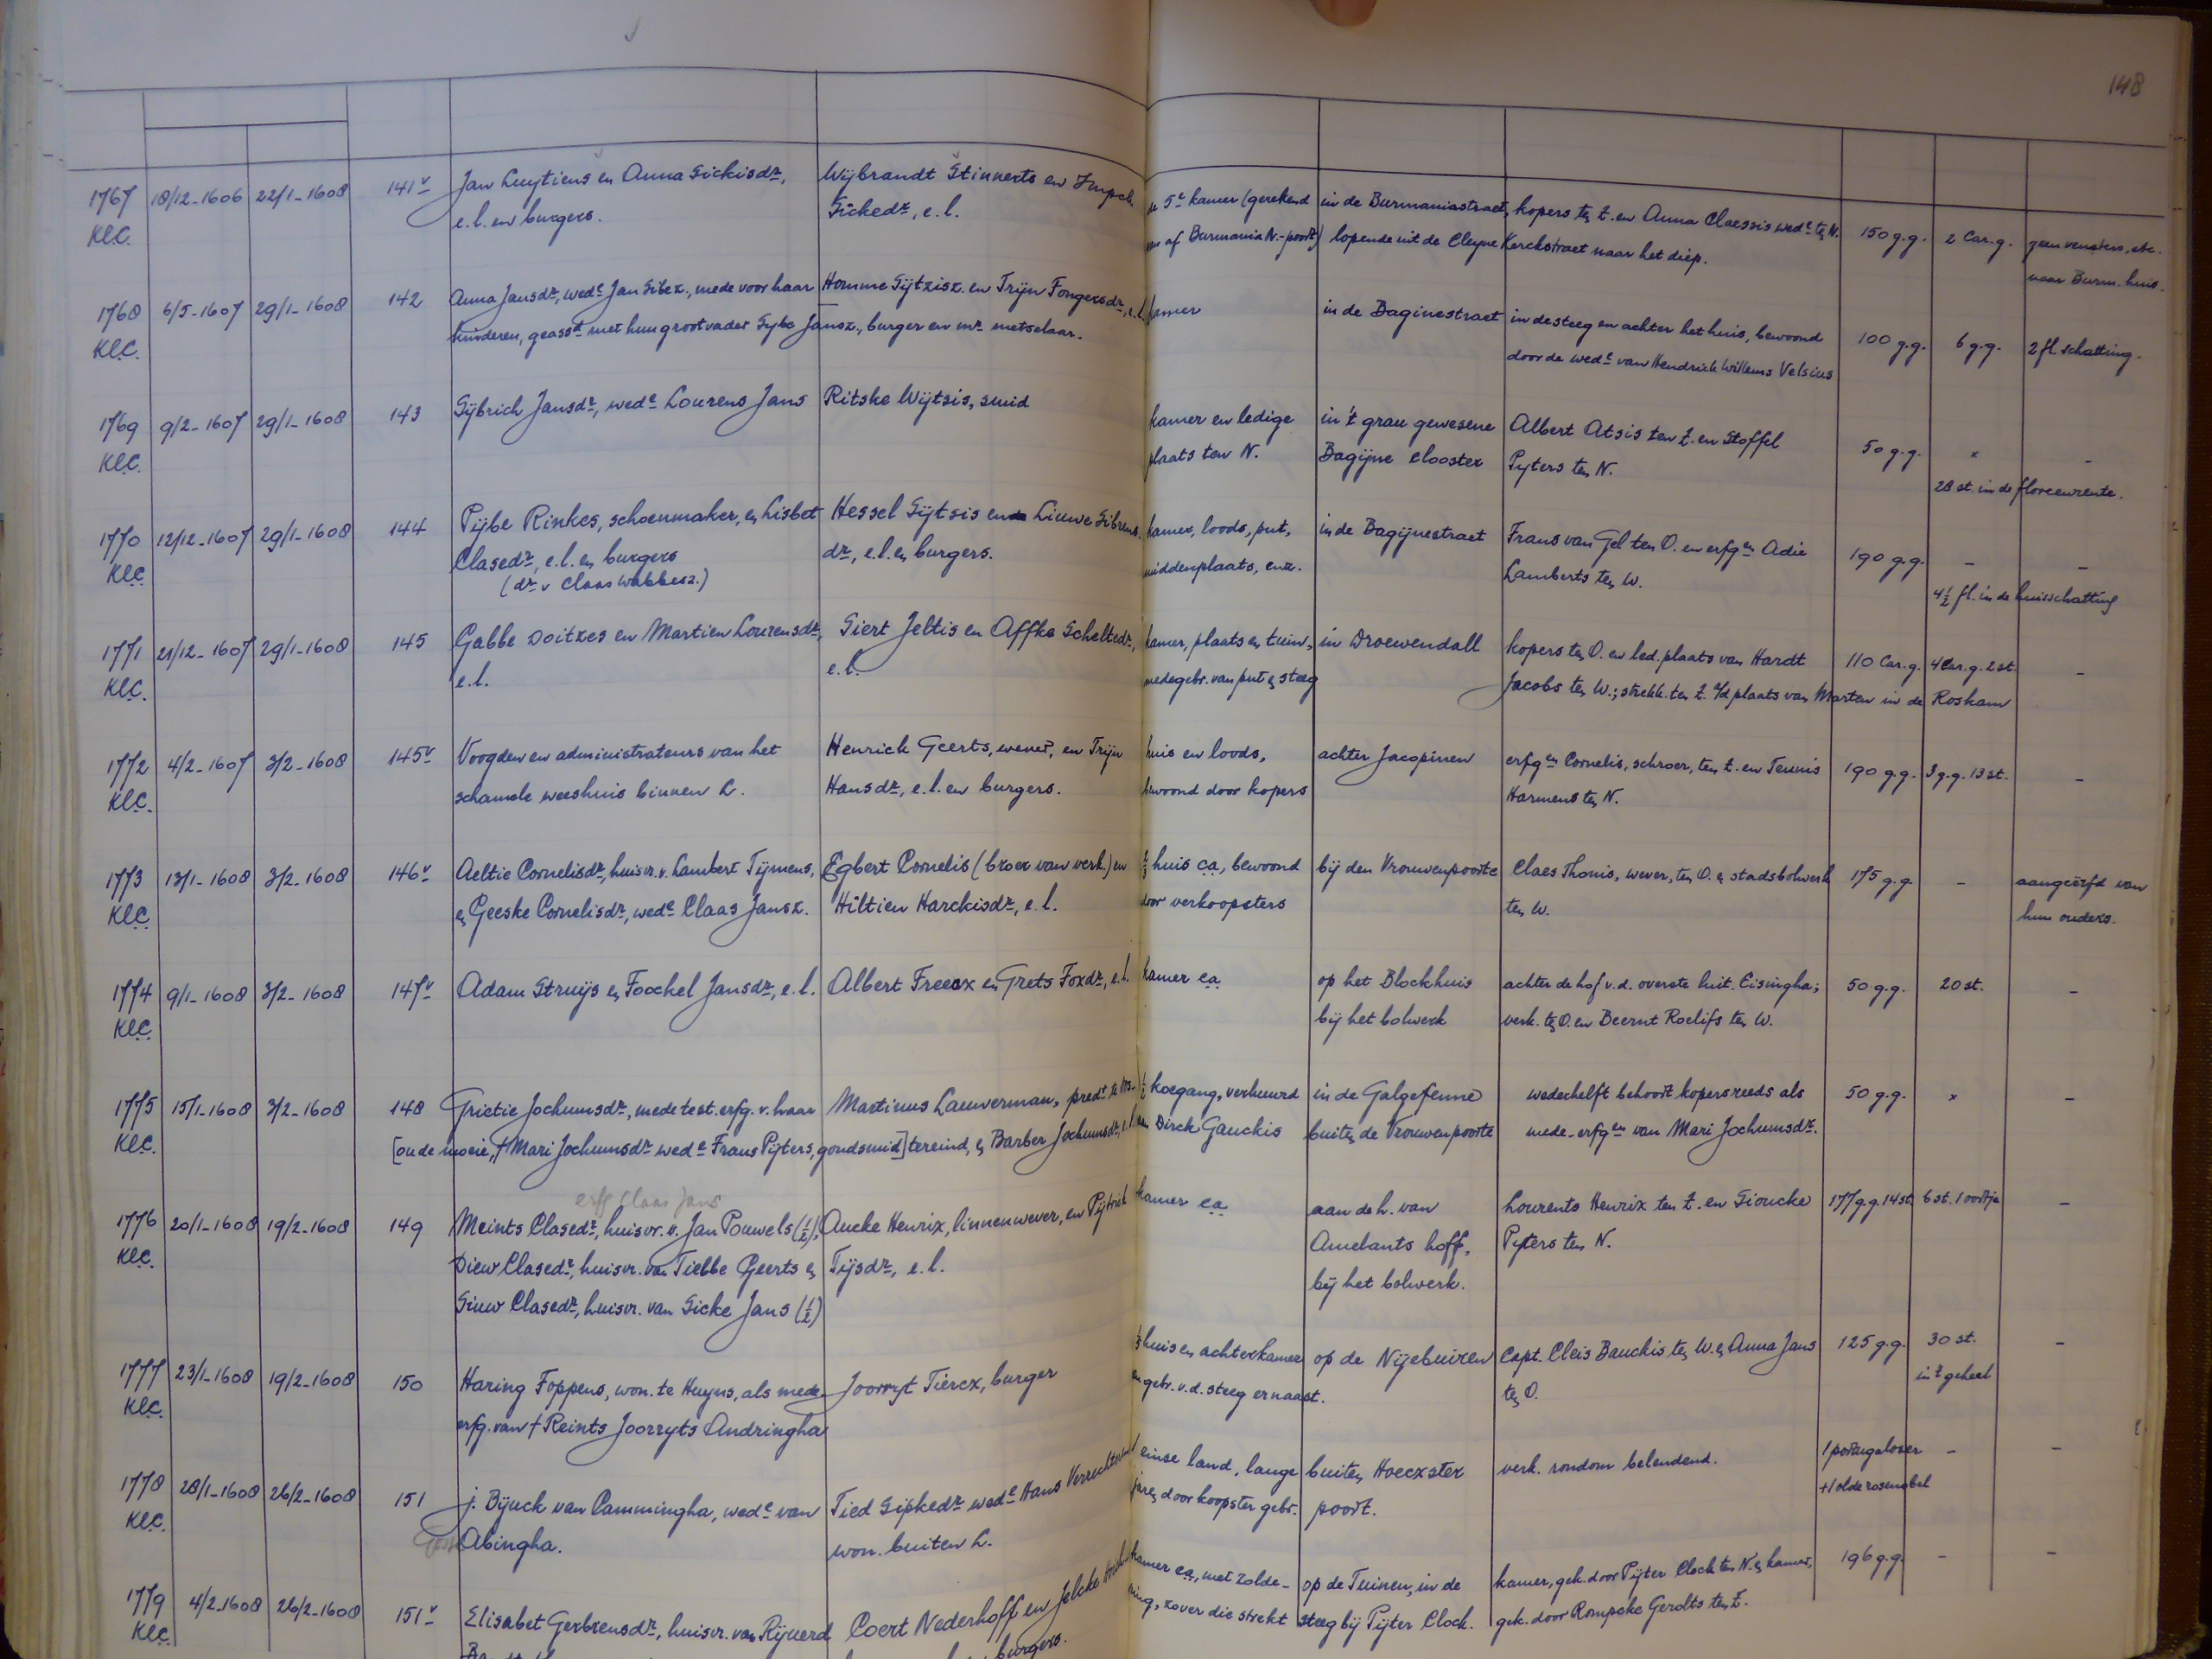 148
1767 18/12-1606 22/1-1608 141v Jan Luytiens en Anna Sickisdr, Wijbrandt Stinnerts en de 5e kamer (gerekend in de Burmaniastraet, kopers ten Z. en Anna Claessis wede ten N. 150 g.g. 2 Car.g. geen vensters, etc.
KLC. e.l. en burgers. Sickedr, e.l. van af Burmania N.-poort) lopende uit de Cleyne Kerckstraet naar het diep. naar Burm. huis.
1768 6/5-1607 29/1-1608 142 Anna Jansdr, wede Jan Sibez., mede voor haar Homme Sijtzisz. en Trijn Fongersdr, e.l. kamer in de Baginestraet in de steeg en achter het huis, bewoond 100 g.g. 6 g.g. 2 fl. schatting.
KLC. kinderen, geasst met hun grootvader Sybe Jansz., burger en mr metselaar. door de wede van Hendrick Willems Velsius
1769 9/2-1607 29/1-1608 143 Sÿbrich Jansdr, wede Lourens Jans Ritske Wijtsis, smid kamer en ledige in 't grau gewesene Albert Atsis ten Z. en Stoffel 50 g.g. x -
KLC. plaats ten N. Bagijne clooster Pyters ten N. 28 st. in de floreenrente.
1770 12/12-1607 29/1-1608 144 Pijbe Rinkes, schoenmaker, en Lisbet Hessel Sijtsis en Lieuwe Sibrens kamer, loods, put, in de Bagijnestraet Frans van Gel ten O. en erfgen Adie 190 g.g. - -
KLC Clasedr, e.l. en burgers dr, e.l. en burgers. middenplaats, enz. Lamberts ten W. 4½ fl. in de huisschatting
(dr v Claas Wabbesz.)
1771 21/12-1607 29/1-1608 145 Gabbe Doitzes en Martien Lourensdr, Siert Jeltis en Affke Scheltedr, kamer, plaats en tuin, in Droewendall kopers ten O. en led. plaats van Hardt 110 Car.g. 4 Car.g. 2 st. -
KLC. e.l. e.l. medegebr. van put en steeg Jacobs ten W.; strekk. ten Z. a/d plaats van Marten in de Roskam
1772 4/2-1607 3/2-1608 145v Voogden en administrateurs van het Henrick Geerts, wever, en Trijn huis en loods, achter Jacopinen erfgen Cornelis, schroer, ten Z. en Teunis 190 g.g. 3 g.g. 13 st. -
KLC. schamele weeshuis binnen L. Hansdr, e.l. en burgers. bewoond door kopers Harmens ten N.
1773 13/1-1608 3/2-1608 146v Aeltie Cornelisdr, huisvr. v. Lambert Tijmens, Egbert Cornelis (broer van verk.) en huis ca, bewoond bij den Vrouwenpoorte Claes Thonis, wever, ten O. en stadsbolwerk 175 g.g. - aangeërfd van
KLC. en Geeske Cornelisdr, wede Claas Jansz. Hiltien Harckisdr, e.l. door verkoopsters ten W. hun ouders.
1774 9/1-1608 3/2-1608 147v Adam Struijs en Foockel Jansdr, e.l. Albert Freerx en Grets Foxdr, e.l. kamer ca op het Blockhuis achter de hof v.d. overste luit. Eisingha; 50 g.g. 20 st. -
KLC. bij het bolwerk verk. ten O. en Beernt Roelifs ten W.
1775 15/1-1608 3/2-1608 148 Grietie Jochumsdr, mede test. erfg. v. haar Martinus Lauwerman, predt te ½ koegang, verhuurd in de Galgefenne wederhelft behoort kopers reeds als 50 g.g. x -
KLC. [oude moeie, † Mari Jochumsdr wede Frans Pijters, goudsmid] tereind, en Barber Jochumsdr, e.l. aan Dirck Gauckis buiten de Vrouwenpoorte mede-erfgen van Mari Jochumsdr.
erfg Claas Jans
1776 20/1-1608 19/2-1608 149 Meints Clasedr, huisvr. v. Jan Pouwels (½), Aucke Henrix, linnenwever, en Pijtrick kamer ca aan de h. van Lourents Henrix ten Z. en Sioucke 177 g.g. 14 st. 6 st. 1 oortje -
KLC. Diew Clasedr, huisvr. van Tiebbe Geerts en Tijsdr, e.l. Amelants hoff, Pyters ten N.
Siuw Clasedr, huisvr. van Sicke Jans (½) bij het bolwerk.
1777 23/1-1608 19/2-1608 150 Haring Foppens, won. te Huyns, als mede Joorryt Tiercx, burger huis en achterkamer op de Nijebuiren Capt. Cleis Bauckis ten W. en Anna Jans 125 g.g. 30 st. -
KLC. erfg. van † Reints Joorryts Andringha en gebr. v.d. steeg ernaast. ten O. in 't geheel
1778 28/1-1608 26/2-1608 151 j. Bijuck van Cammingha, wede van Tied Sipkedr wede Hans einse land, lange buiten Hoecxster verk. rondom belendend. 1 portugaloser - -
KLC. Abingha. won. buiten L. jaren door koopster gebr. poort. + 1 olde rosenobel
1779 4/2-1608 26/2-1608 151v Elisabet Gerbrensdr, huisvr. van Rijuerd Coert Nederhoff en Jelcke kamer ca, met zolde- op de Tuinen, in de kamer, gek. door Pijter Clock ten N. en kamer, 196 g.g. - -
KLC. burgers. ring, zover die strekt steeg bij Pijter Clock. gek. door Rompcke Gerolts ten Z.